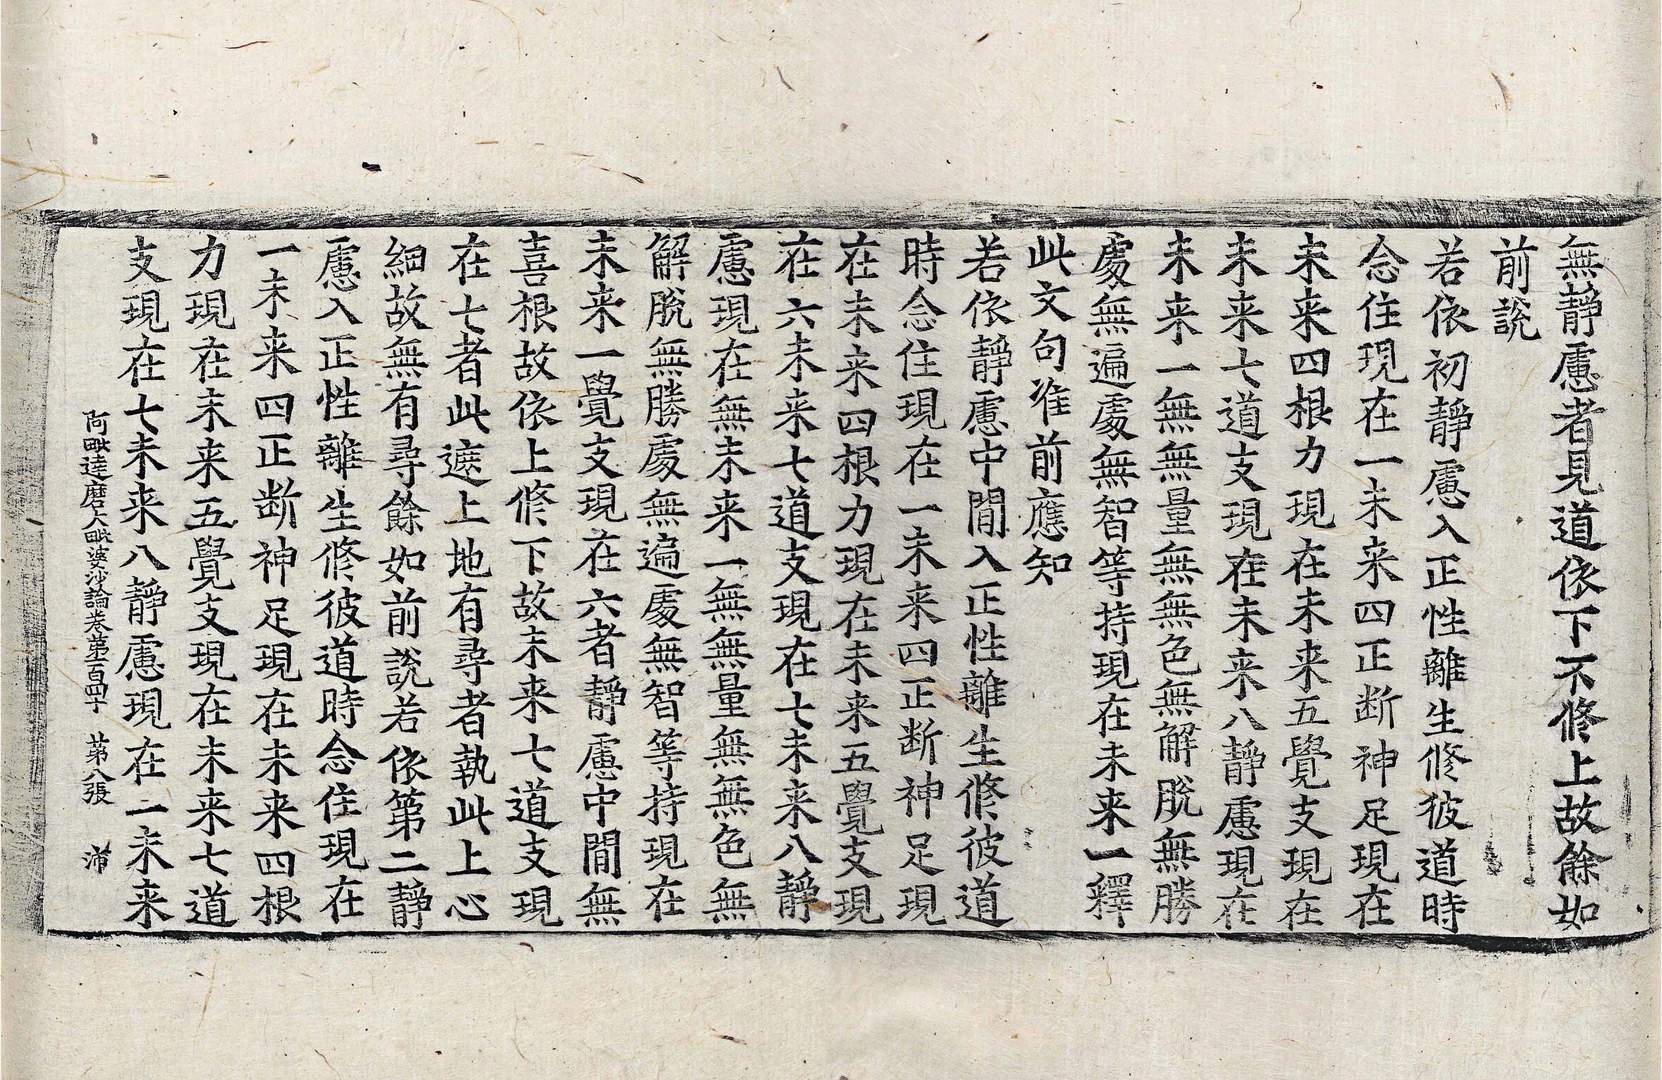 無靜慮者見道依下不修上故餘如
前說
若依初靜慮入正性離生修彼道時
念住現在一未来四正断神足現在
未来四根力現在未来五覺支現在
未来七道支現在未来八靜慮現在
未来一無無量無無色無解脫無勝
處無遍處無智等持現在未来一釋
此文句准前應知
若依靜慮中間入正性離生修彼道
時念住現在一未来四正断神足現
在未来四根力現在未来五覺支現
在六未来七道支現在七未来八靜
慮現在無未来一無無量無無色無
解脫無勝處無遍處無智等持現在
未来一覺支現在六者靜慮中間無
喜根故依上修下故未来七道支現
在七者此遮上地有尋者執此上心
細故無有尋餘如前說若依第二靜
慮入正性離生修彼道時念住現在
一未来四正断神足現在未来四根
力現在未来五覺支現在未来七道
支現在七未来八靜慮現在一未来
阿毗達磨大毗婆沙論卷第一百四十 第八張 沛